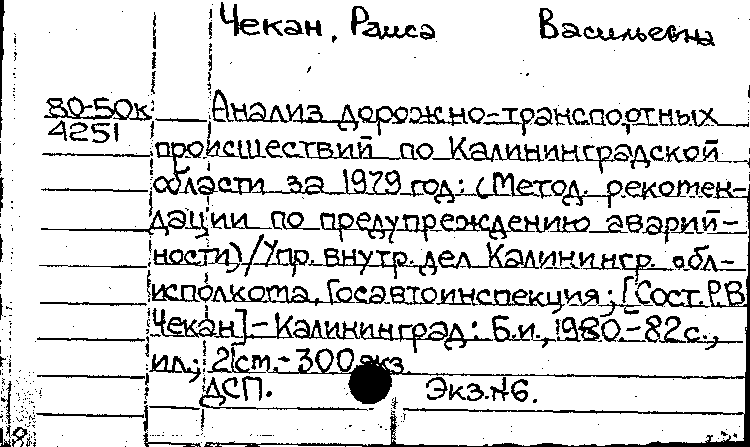 Чекан, Раиса Васильевна
80-50к Анализ дорожно-транспортных
4251
происшествий по Калининградской
области за 1979 год: (Метод. рекомен-
дации по предупреждению аварий-
ности) / Упр. внутр. дел Калинингр. обл-
исполкома, Госавтоинспекция; [Сост. Р.В.
Чекан]. - Калининград: Б.и., 1980. - 82 с.,
ил.; 21 см. - 300 экз.
ДСП. Экз. №6.